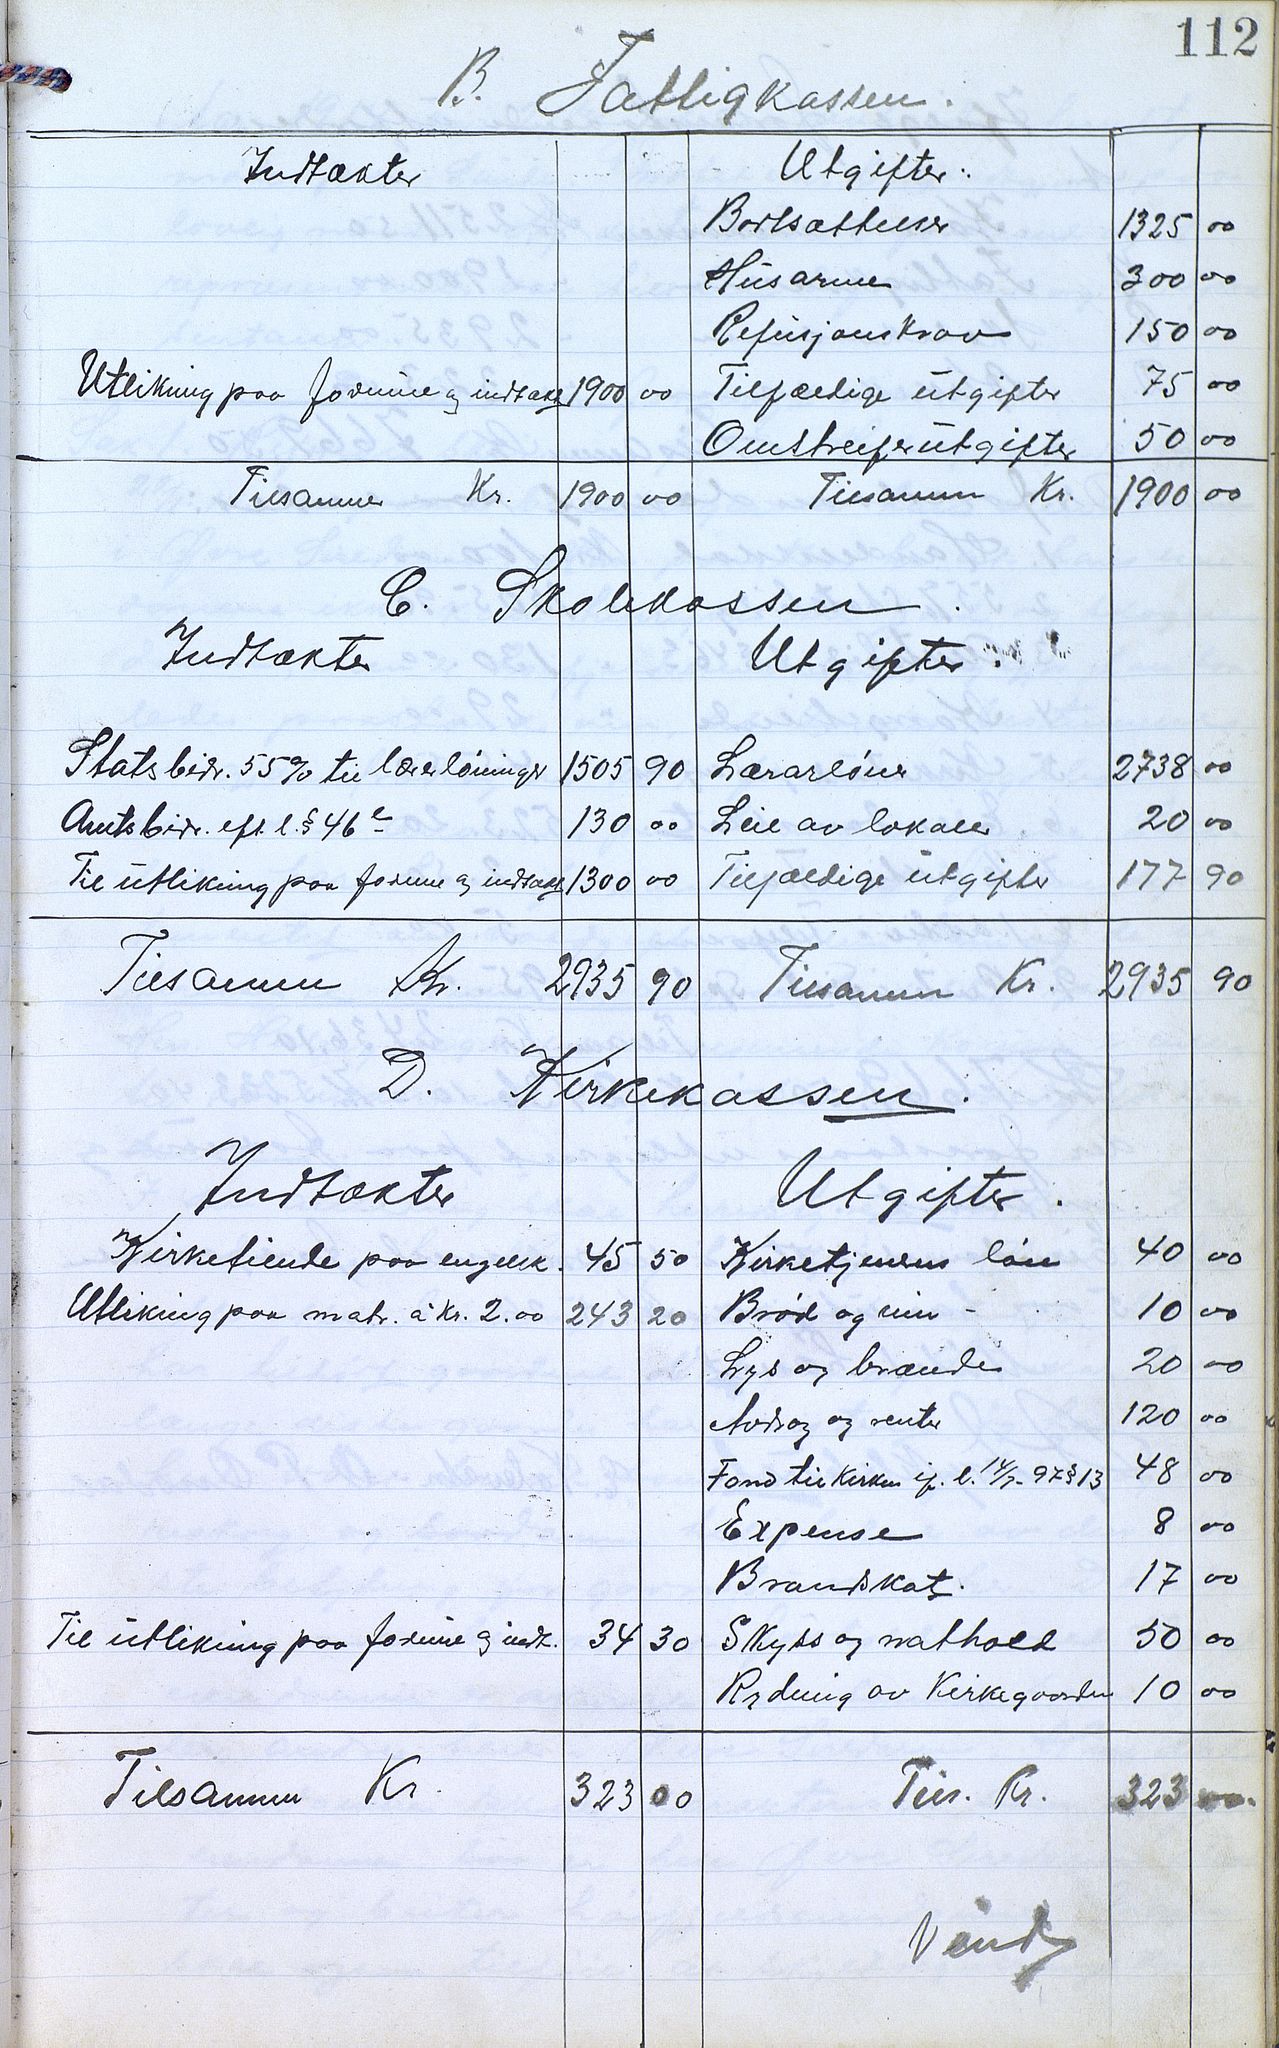 112
B. Fattigkassen.
Indtækter Utgifter.
Bortsættelser 1325 00
Husarme 300 00
Refusjonskrav 150 00
Utlikning paa formue og indtækt 1900 00 Tilfældige utgifter 75 00
Omstreiferutgifter 50 00
Tilsammen Kr. 1900 00 Tilsammen Kr. 1900 00
C. Skolekassen.
Indtækter Utgifter.
Statsbidr. 55% til lærerlöninger 1505 90 Lærarlöner 2738 00
Amtsbidr. eft. l. § 46 e 130 00 Leie av lokaler 20 00
Til utlikning paa formue og indtækt 1300 00 Tilfældige utgifter 177 90
Tilsammen Kr. 2935 90 Tilsammen Kr. 2935 90
D. Kirkekassen.
Indtækter Utgifter.
Kirketiende paa engelsk. 45 50 Kirketjenerens lön 40 00
Utliking paa matr. á Kr. 2.00 243 20 Bröd og vin - 10 00
Lys og brænde 20 00
Avdrag og renter 120 00
Fond til Kirken if. l. 14/7-97 § 13 48 00
Expense 8 00
Brandskat. 17 00
Til utlikning paa formue og indt. 34 30 Skyss og mathold 50 00
Rydning av Kirkegaarden 10 00
Tilsammen Kr. 323 00 Tils. Kr. 323 00.
Vend